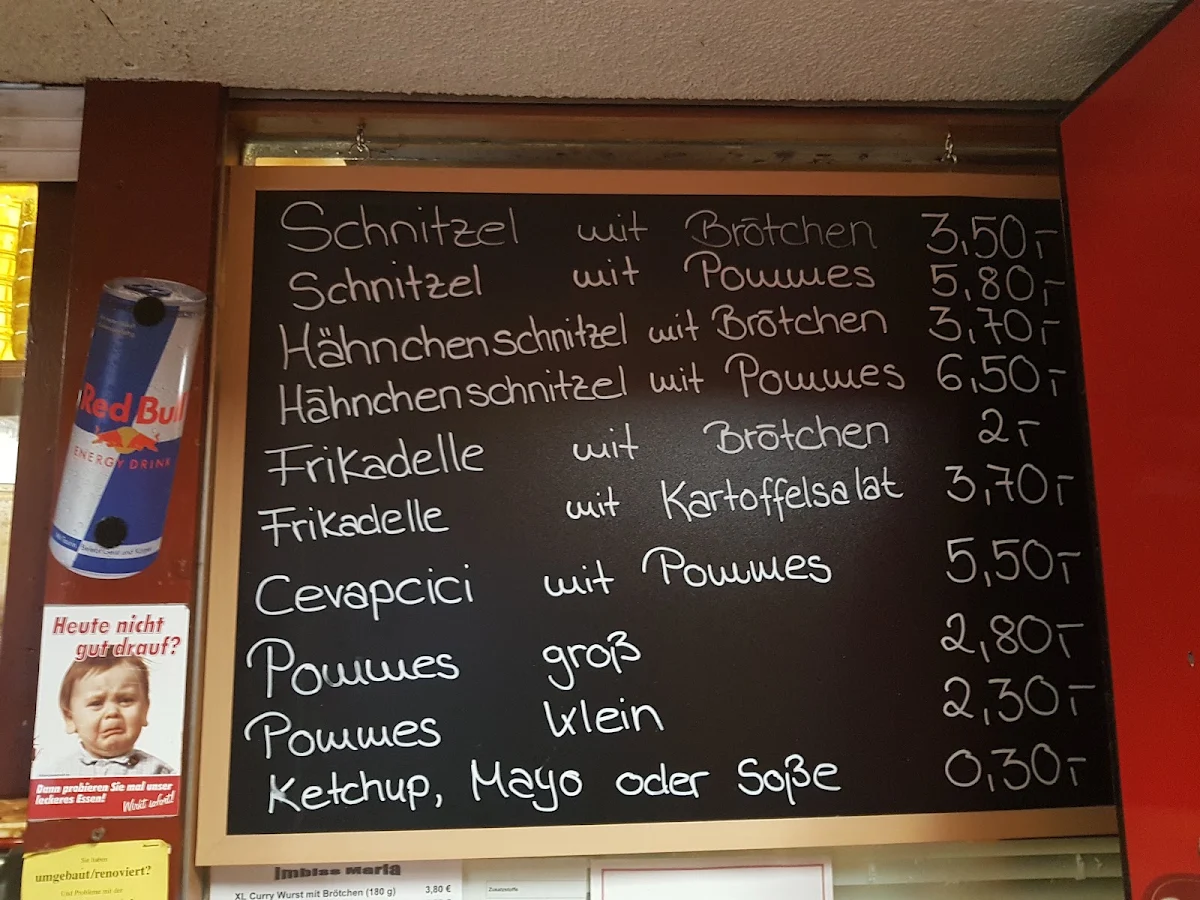 Schnitzel mit Brötchen 3,50,-
Schnitzel mit Pommes 5,80,-
Hähnchenschnitzel mit Brötchen 3,70,-
Hähnchenschnitzel mit Pommes 6,50,-
Frikadelle mit Brötchen 2,-
Frikadelle mit Kartoffelsalat 3,70,-
Cevapcici mit Pommes 5,50,-
Pommes groß 2,80,-
Pommes klein 2,30,-
Ketchup, Mayo oder Soße 0,30,-
Red Bull
ENERGY DRINK
Heute nicht
gut drauf?
Dann probieren Sie mal unser
leckeres Essen!
Wirkt sofort!
Sie haben
umgebaut/renoviert?
Und Probleme mit der
Imbiss Maria
XL Curry Wurst mit Brötchen (180 g) 3,80 €
Zusatzstoffe